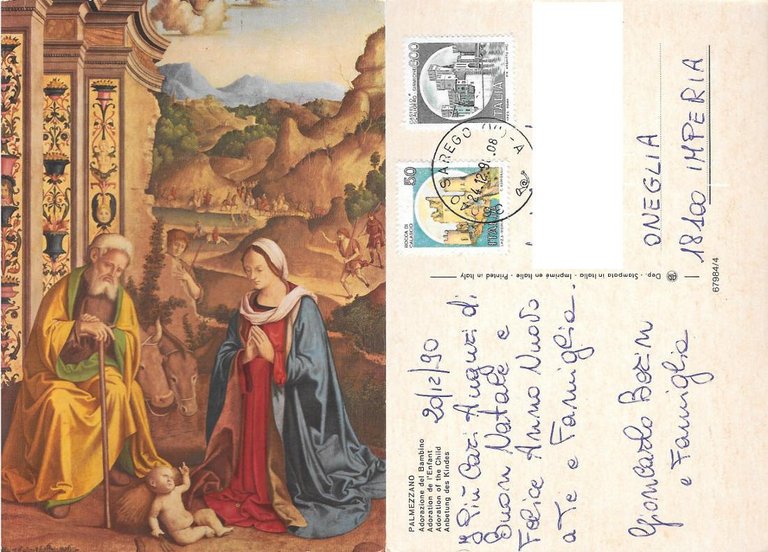 PALMEZZANO
Adorazione del Bambino
Adoration de l'Enfant
Adoration of the Child
Anbetung des Kindes
20/12/90
I Più Cari Auguri di
Buon Natale e
Felice Anno Nuovo
a Te e Famiglia.
Giancarlo
e Famiglia
Dep. - Stampata in Italia - Imprimé en Italie - Printed in Italy
67984/4
ONEGLIA
18100 IMPERIA
300
CASTELLO
SCALIGERO - SIRMIONE
ITALIA
50
ROCCA DI
CALASCIO
ITALIA
SAREGO
24.12.9
08